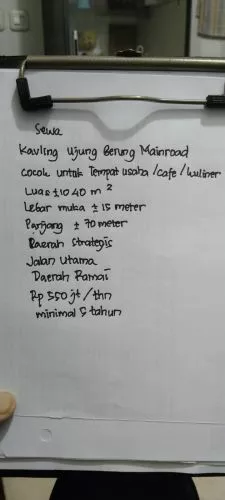 Sewa
Kavling Ujung Berung Mainroad
cocok untuk Tempat usaha/cafe/kuliner
Luas ±1040 m²
Lebar muka ± 15 meter
Panjang ± 70 meter
Daerah Strategis
Jalan Utama
Daerah Ramai
Rp 550 jt/thn
minimal 5 tahun